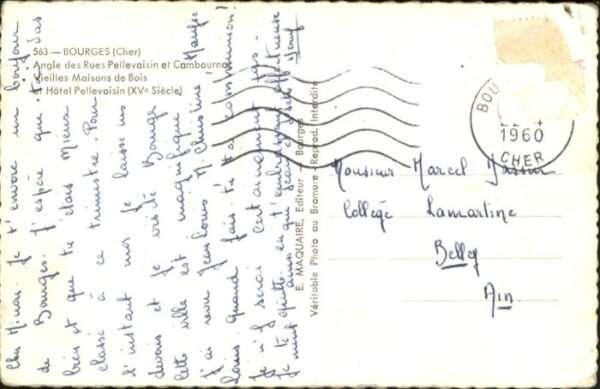 563 — BOURGES (Cher)
Angle des Rues Pellevoisin et Cambournac
Vieilles Maisons de Bois
et Hôtel Pellevoisin (XVe Siècle)
Je t'envoie un bonjour
de Bourges. J'espère que
très et que tu étais mieux
classé à ce trimestre. Pour
l'instant moi je laisse mes
devoirs et je visite Bourges
cette ville est magnifique
j'ai revu Jean Louis M. Christine
quand fais-tu ta communion?
Je serai certainement
je te quitte en t'embrassant affectueusement
E. MAQUAIRE, Editeur — Bourges
Véritable Photo au Bromure - Reprod. Interdite
BOU
1960
CHER
Monsieur Marcel
Collège Lamartine
Belley
Ain